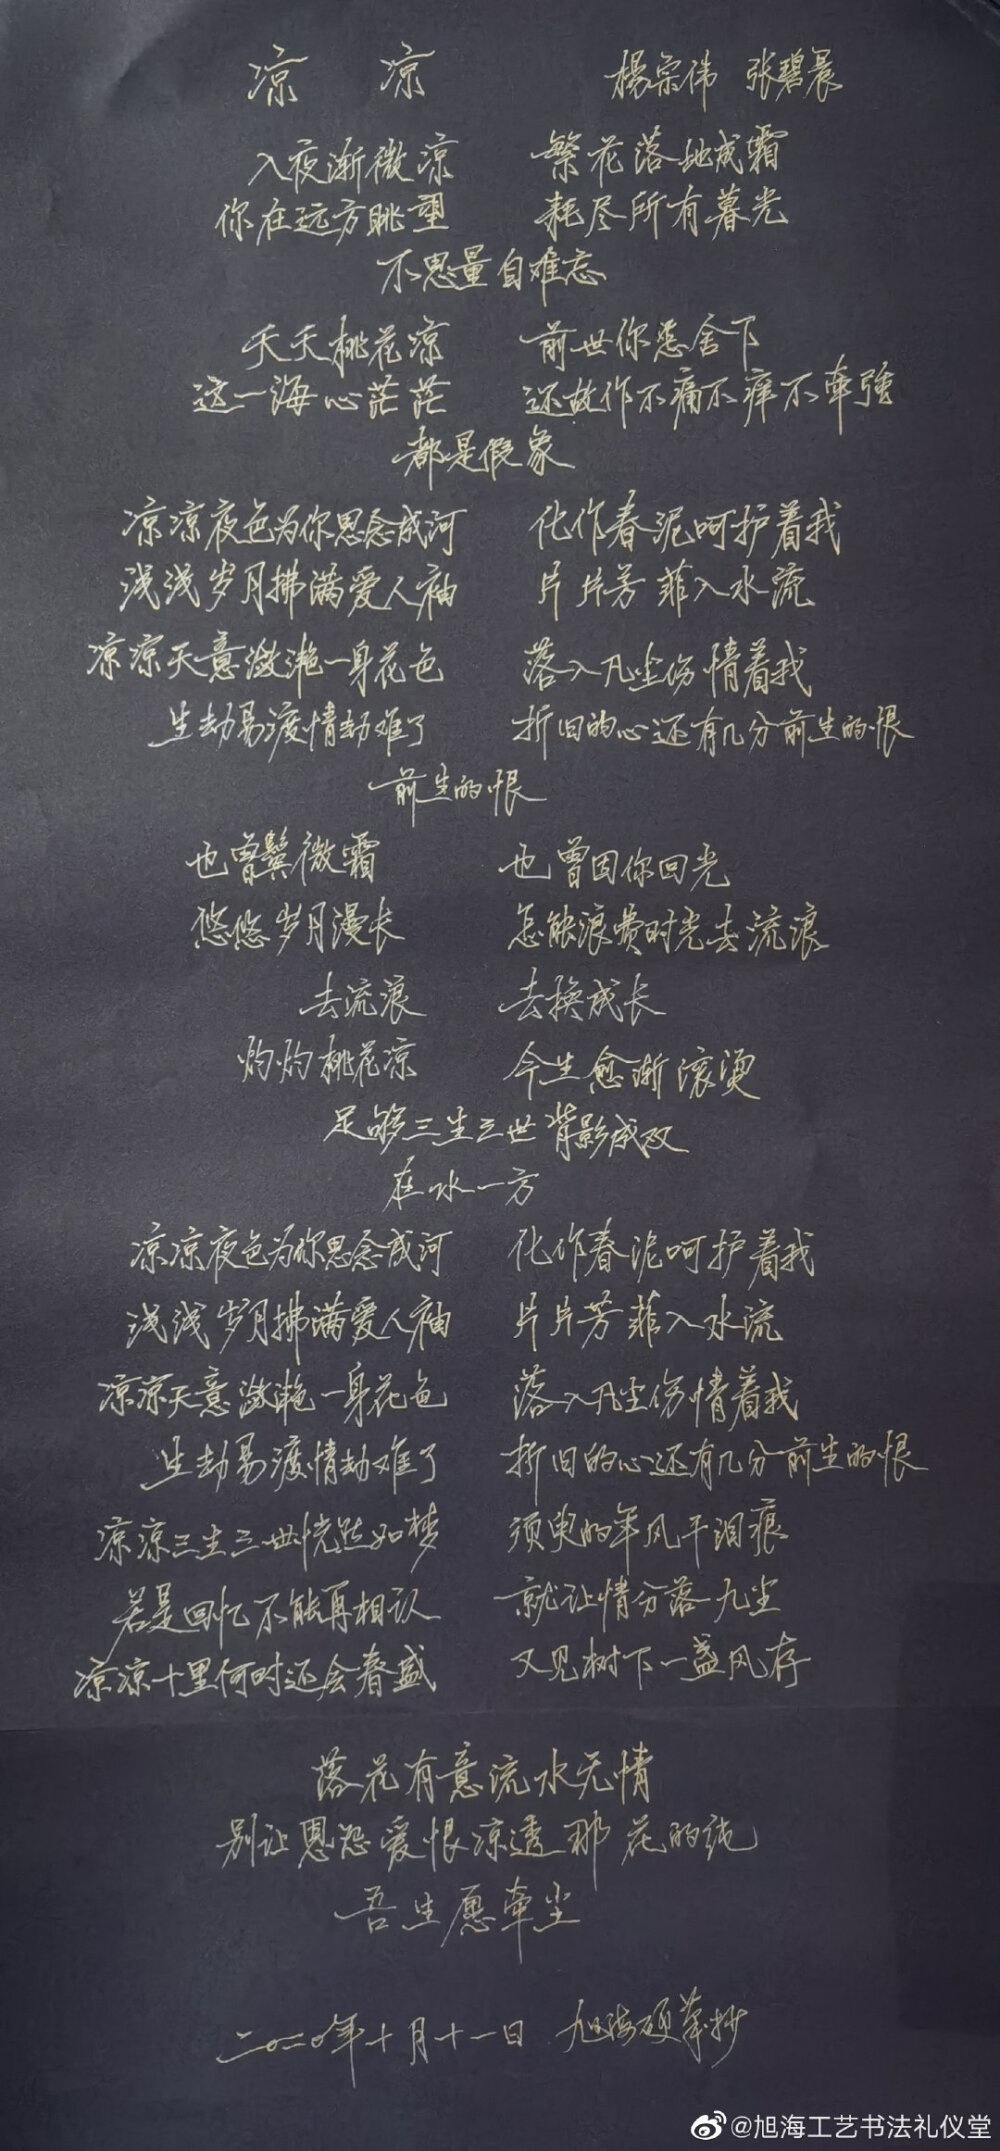 凉 凉 杨宗伟 张碧晨
入夜渐微凉 繁花落地成霜
你在远方眺望 耗尽所有暮光
不思量自难忘
夭夭桃花凉 前世你怎舍下
这一海心茫茫 还故作不痛不痒不牵强
都是假象
凉凉夜色为你思念成河 化作春泥呵护着我
浅浅岁月拂满爱人袖 片片芳菲入水流
凉凉天意潋滟一身花色 落入凡尘伤情着我
生劫易渡情劫难了 折旧的心还有几分前生的恨
前生的恨
也曾鬓微霜 也曾因你回光
悠悠岁月漫长 怎能浪费时光去流浪
去流浪 去换成长
灼灼桃花凉 今生愈渐滚烫
足够三生三世背影成双
在水一方
凉凉夜色为你思念成河 化作春泥呵护着我
浅浅岁月拂满爱人袖 片片芳菲入水流
凉凉天意潋滟一身花色 落入凡尘伤情着我
生劫易渡情劫难了 折旧的心还有几分前生的恨
凉凉三生三世恍然如梦 须臾的年风干泪痕
若是回忆不能再相认 就让情分落九尘
凉凉十里何时还会春盛 又见树下一盏风存
落花有意流水无情
别让恩怨爱恨凉透那花的纯
吾生愿牵尘
二〇二〇年十月十一日 旭海硕笔抄
@旭海工艺书法礼仪堂